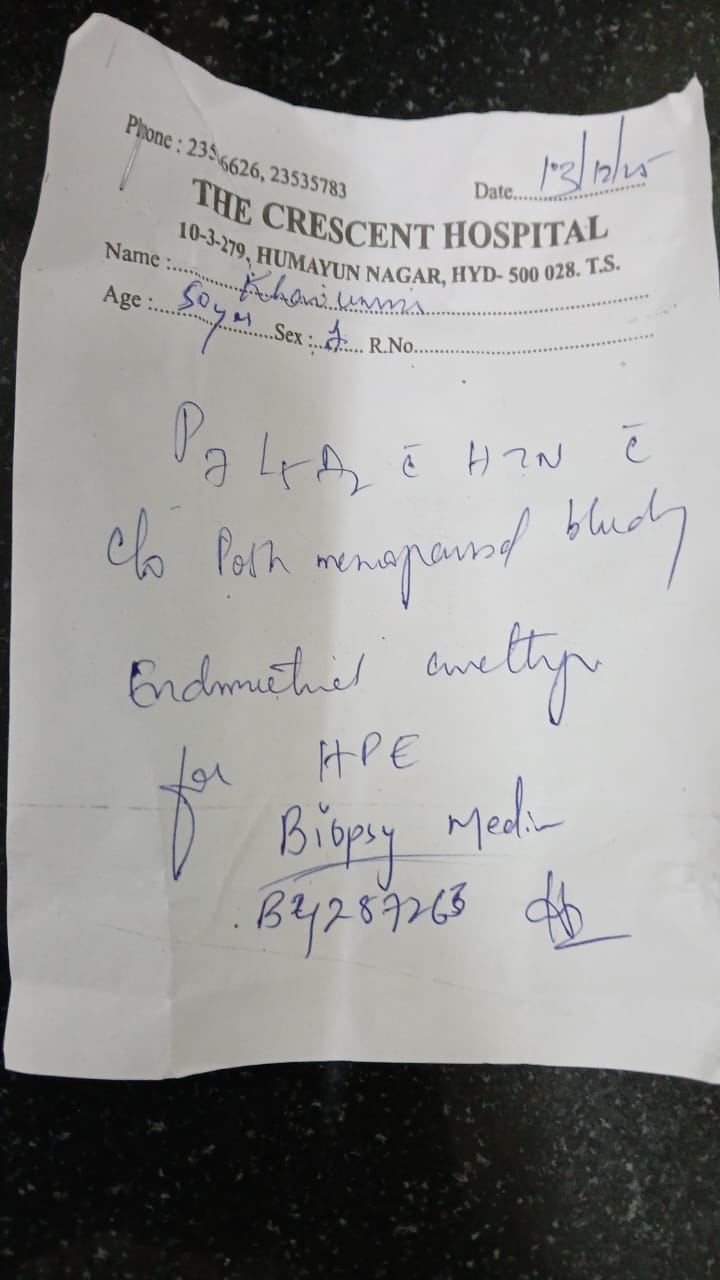 Phone : 235 6626, 23535783
Date 13/12/25
THE CRESCENT HOSPITAL
10-3-279, HUMAYUN NAGAR, HYD- 500 028. T.S.
Name : Khairunnis
Age : 50 yrs Sex : F R.No.
c̄ HTN c̄
c/o Post menopausal bleedg
Endometrial
for HPE
Biopsy Medi
287263